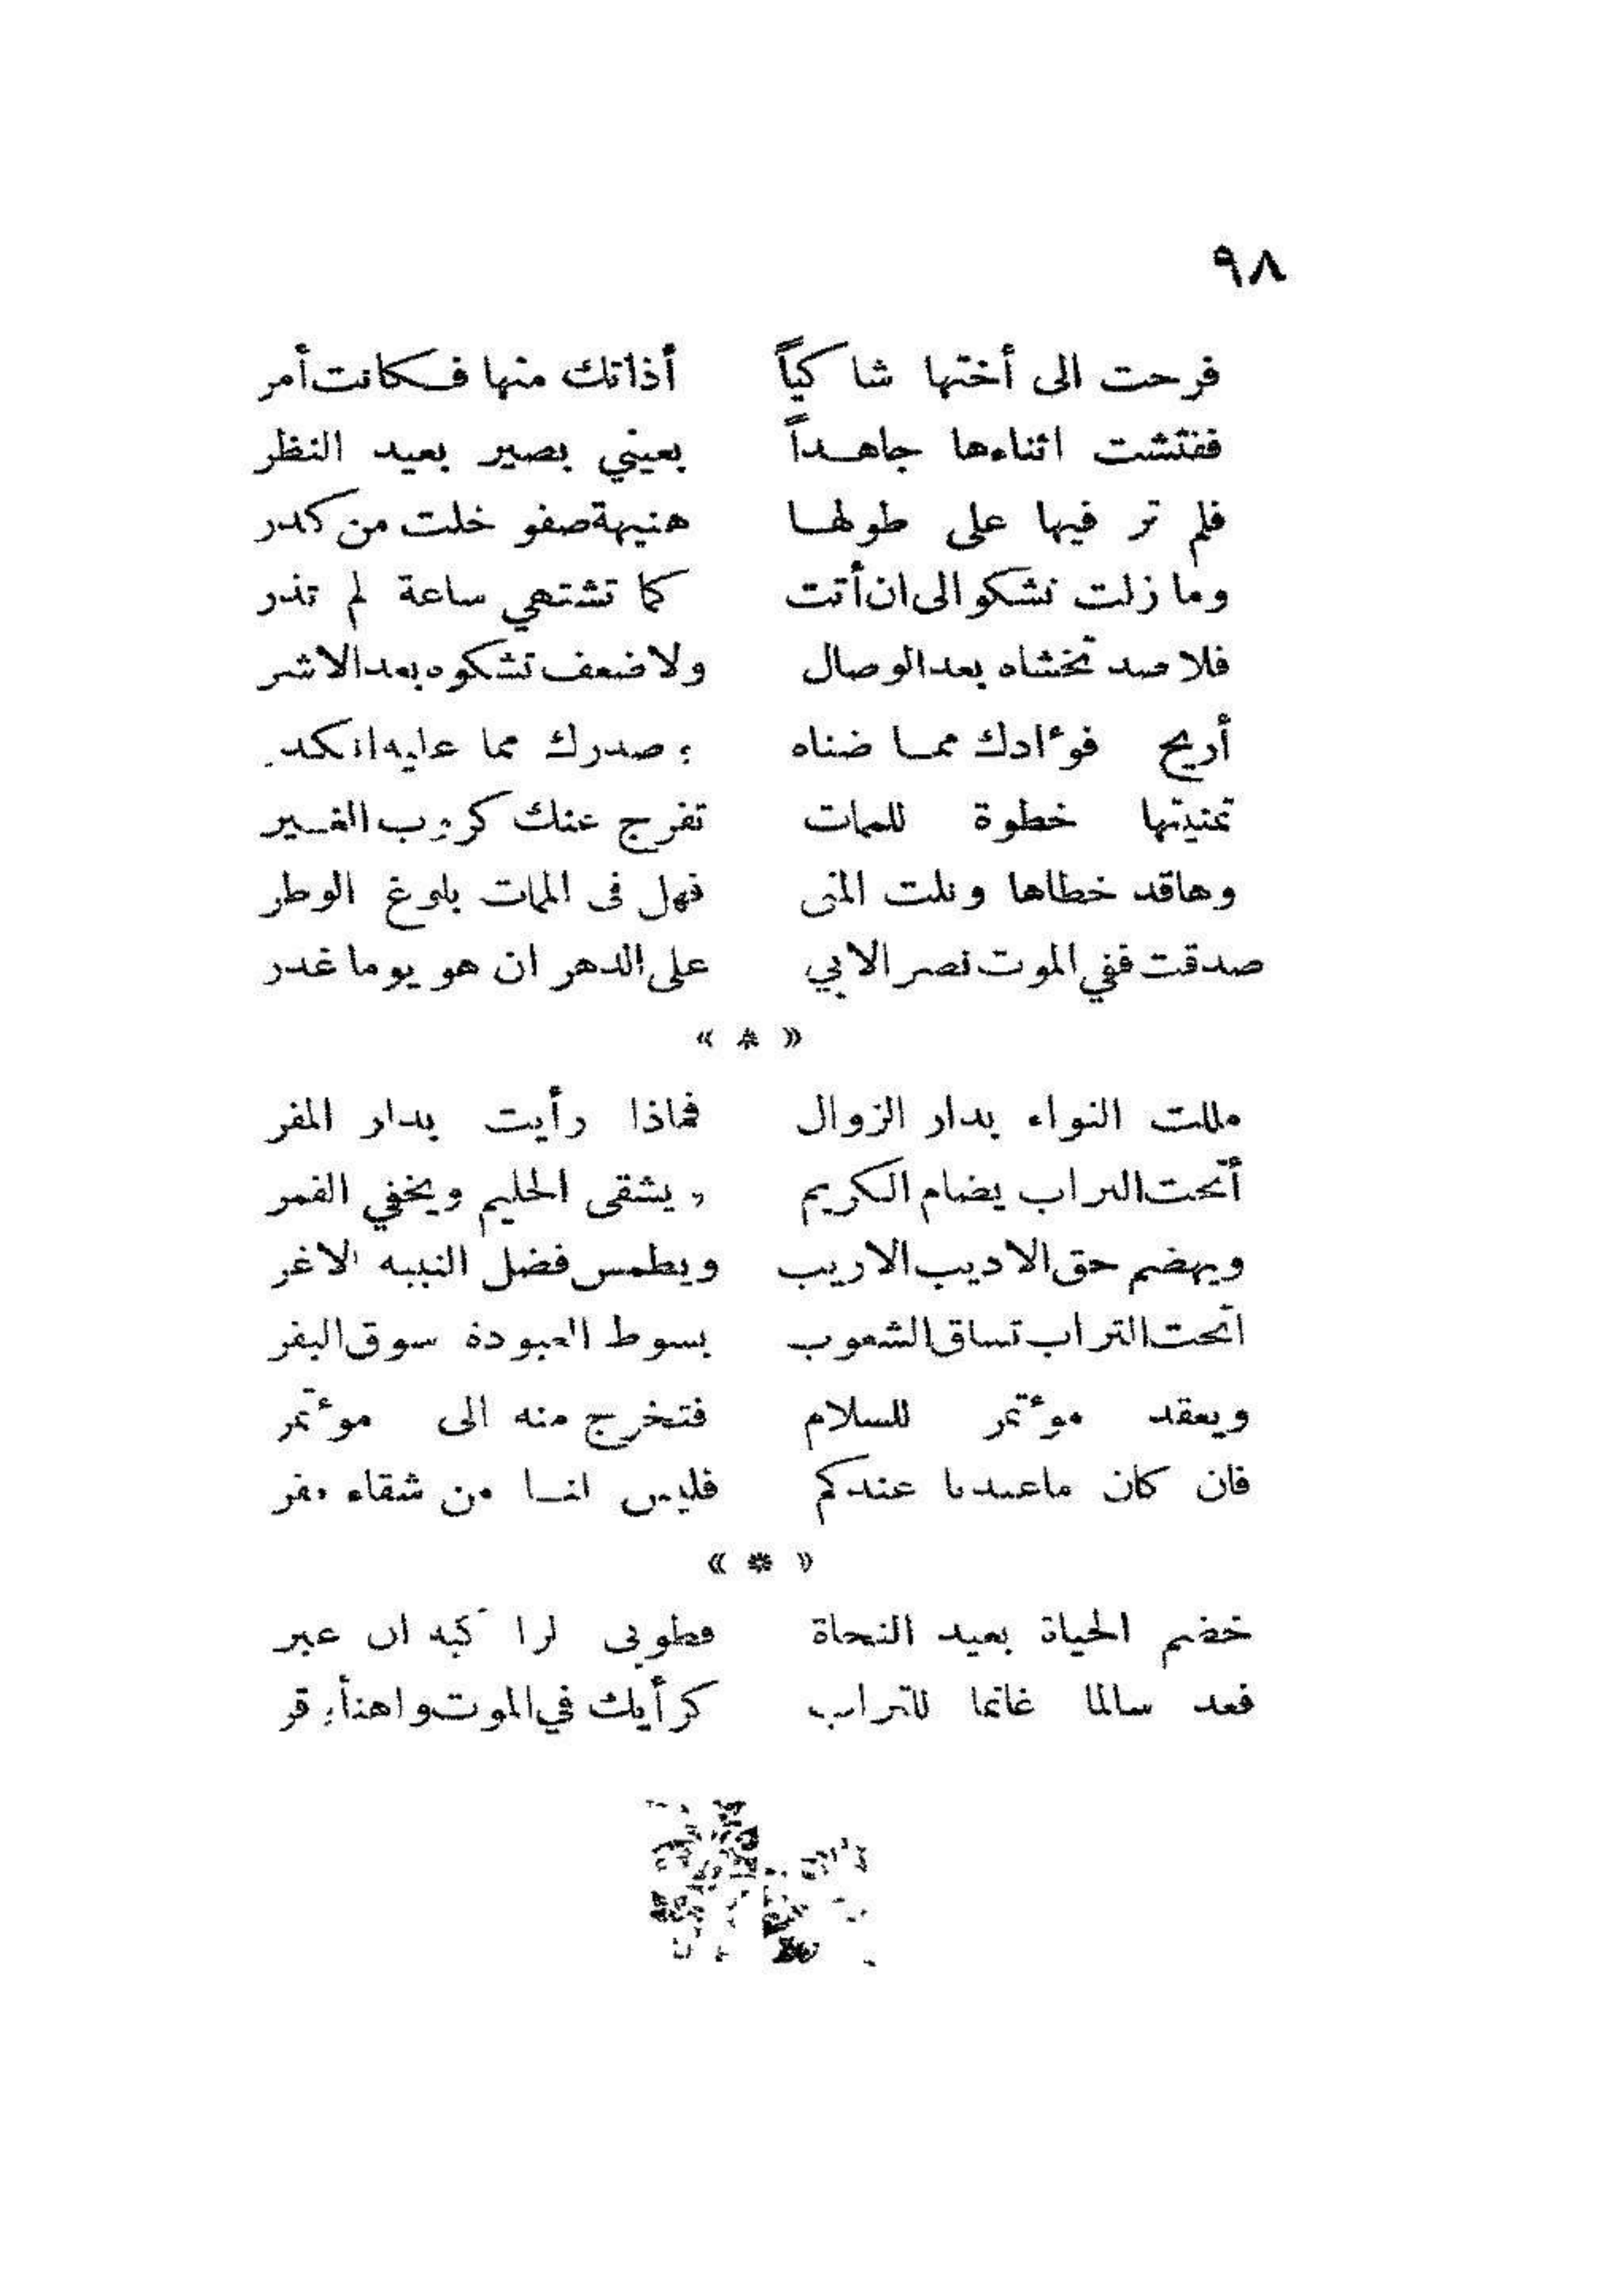 ٩٨
فرحت الى أختها شاكياً أذاتك منها فكانت أمر
ففتشت اثناءها جاهداً بعيني بصير بعيد النظر
فلم تر فيها على طولها هنيهة صفو خلت من كدر
وما زلت تشكو الى ان أتت كما تشتهي ساعة لم تذر
فلا صد تخشاه بعد الوصال ولا ضعف تشكوه بعد الاشر
أريح فوءادك مما ضناه صدرك مما عليه انكدر
تمنيتها خطوة للمات تفرج عنك كروب الغير
وها قد خطاها ونلت المنى فهل فى المات بلوغ الوطر
صدقت ففي الموت نصر الابي على الدهر ان هو يوما غدر
« * »
مللت الثواء بدار الزوال فماذا رأيت بدار المفر
أتحت التراب يضام الكريم ويشقى الحليم ويخفي القمر
ويهضم حق الاديب الاريب ويطمس فضل النبيه الاغر
اتحت التراب تساق الشعوب بسوط العبودة سوق البقر
ويعقد موءتمر للسلام فتخرج منه الى موءتمر
فان كان ما عندنا عندكم فليس لنا من شقاء مفر
« * »
خضم الحياة بعيد النجاة فطوبى لراكبه ان عبر
فعد سالما غانما للتراب كرأيك في الموت واهنأ وقر